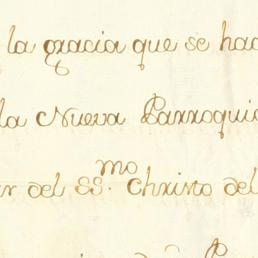 la gracia que se hac
la Nueva Parroquia
ar del SS.mo Christo del